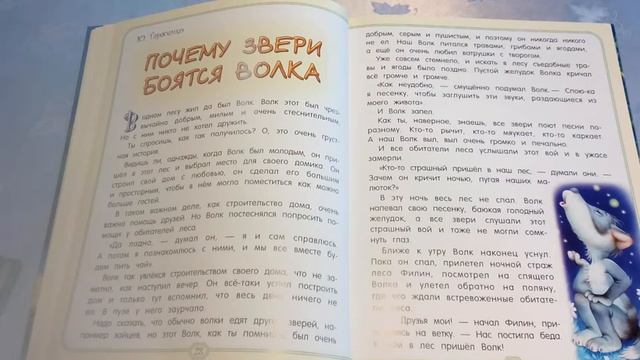 Ю. Тарасенко
ПОЧЕМУ ЗВЕРИ
БОЯТСЯ ВОЛКА
В одном лесу жил да был Волк. Волк этот был чрез-
вычайно добрым, милым и очень стеснительным.
Но с ним никто не хотел дружить.
Ты спросишь, как так получилось? О, это очень груст-
ная история.
Видишь ли, однажды, когда Волк был молодым, он при-
шёл в этот лес и выбрал место для своего домика. Он
строил свой дом с любовью, он сделал его большим
и просторным, чтобы в нём могло поместиться как можно
больше гостей.
В таком важном деле, как строительство дома, очень
важна помощь друзей. Но Волк постеснялся попросить по-
мощи у обитателей леса.
«Да ладно, — думал он, — я и сам справлюсь.
А потом я познакомлюсь с ними, и мы все вместе бу-
дем пить чай».
Волк так увлёкся строительством своего дома, что не за-
метил, как наступил вечер. Он всё-таки успел построить
дом и только тут вспомнил, что весь день ничего не
ел. В пузе у него заурчало.
Надо сказать, что обычно волки едят других зверей, на-
пример зайцев, но этот Волк, как ты помнишь, был очень
добрым, серым и пушистым, и поэтому он никогда никого
не ел. Наш Волк питался травами, грибами и ягодами,
а ещё он очень любил ватрушки с творогом.
Уже совсем стемнело, и искать в лесу съедобные тра-
вы и ягоды было поздно. Пустой желудок Волка кричал
всё громче и громче.
«Как неудобно, — смущённо подумал Волк. — Спою-ка
я песенку, чтобы заглушить эти звуки, раздающиеся из
моего живота».
И Волк запел.
Как ты, наверное, знаешь, все звери поют песни по-
разному. Кто-то рычит, кто-то мяукает, кто-то каркает.
А наш Волк выл, выл очень громко и печально.
И все обитатели леса услышали этот вой и в ужасе
замерли.
«Кто-то страшный пришёл в наш лес, — думали они. —
Зачем он кричит ночью, пугая наших ма-
люток?»
В эту ночь весь лес не спал. Волк
напевал свою песенку, баюкая голодный
желудок, а все звери слушали этот
страшный вой и тоже не могли сомк-
нуть глаз.
Ближе к утру Волк наконец уснул.
Пока он спал, прилетел ночной страж
леса Филин, посмотрел на спящего
Волка и улетел обратно на поляну,
где его ждали встревоженные обитате-
ли леса.
— Друзья мои! — начал Филин, при-
землившись на ветку. — Нас постигла беда.
К нам в лес пришёл Волк!